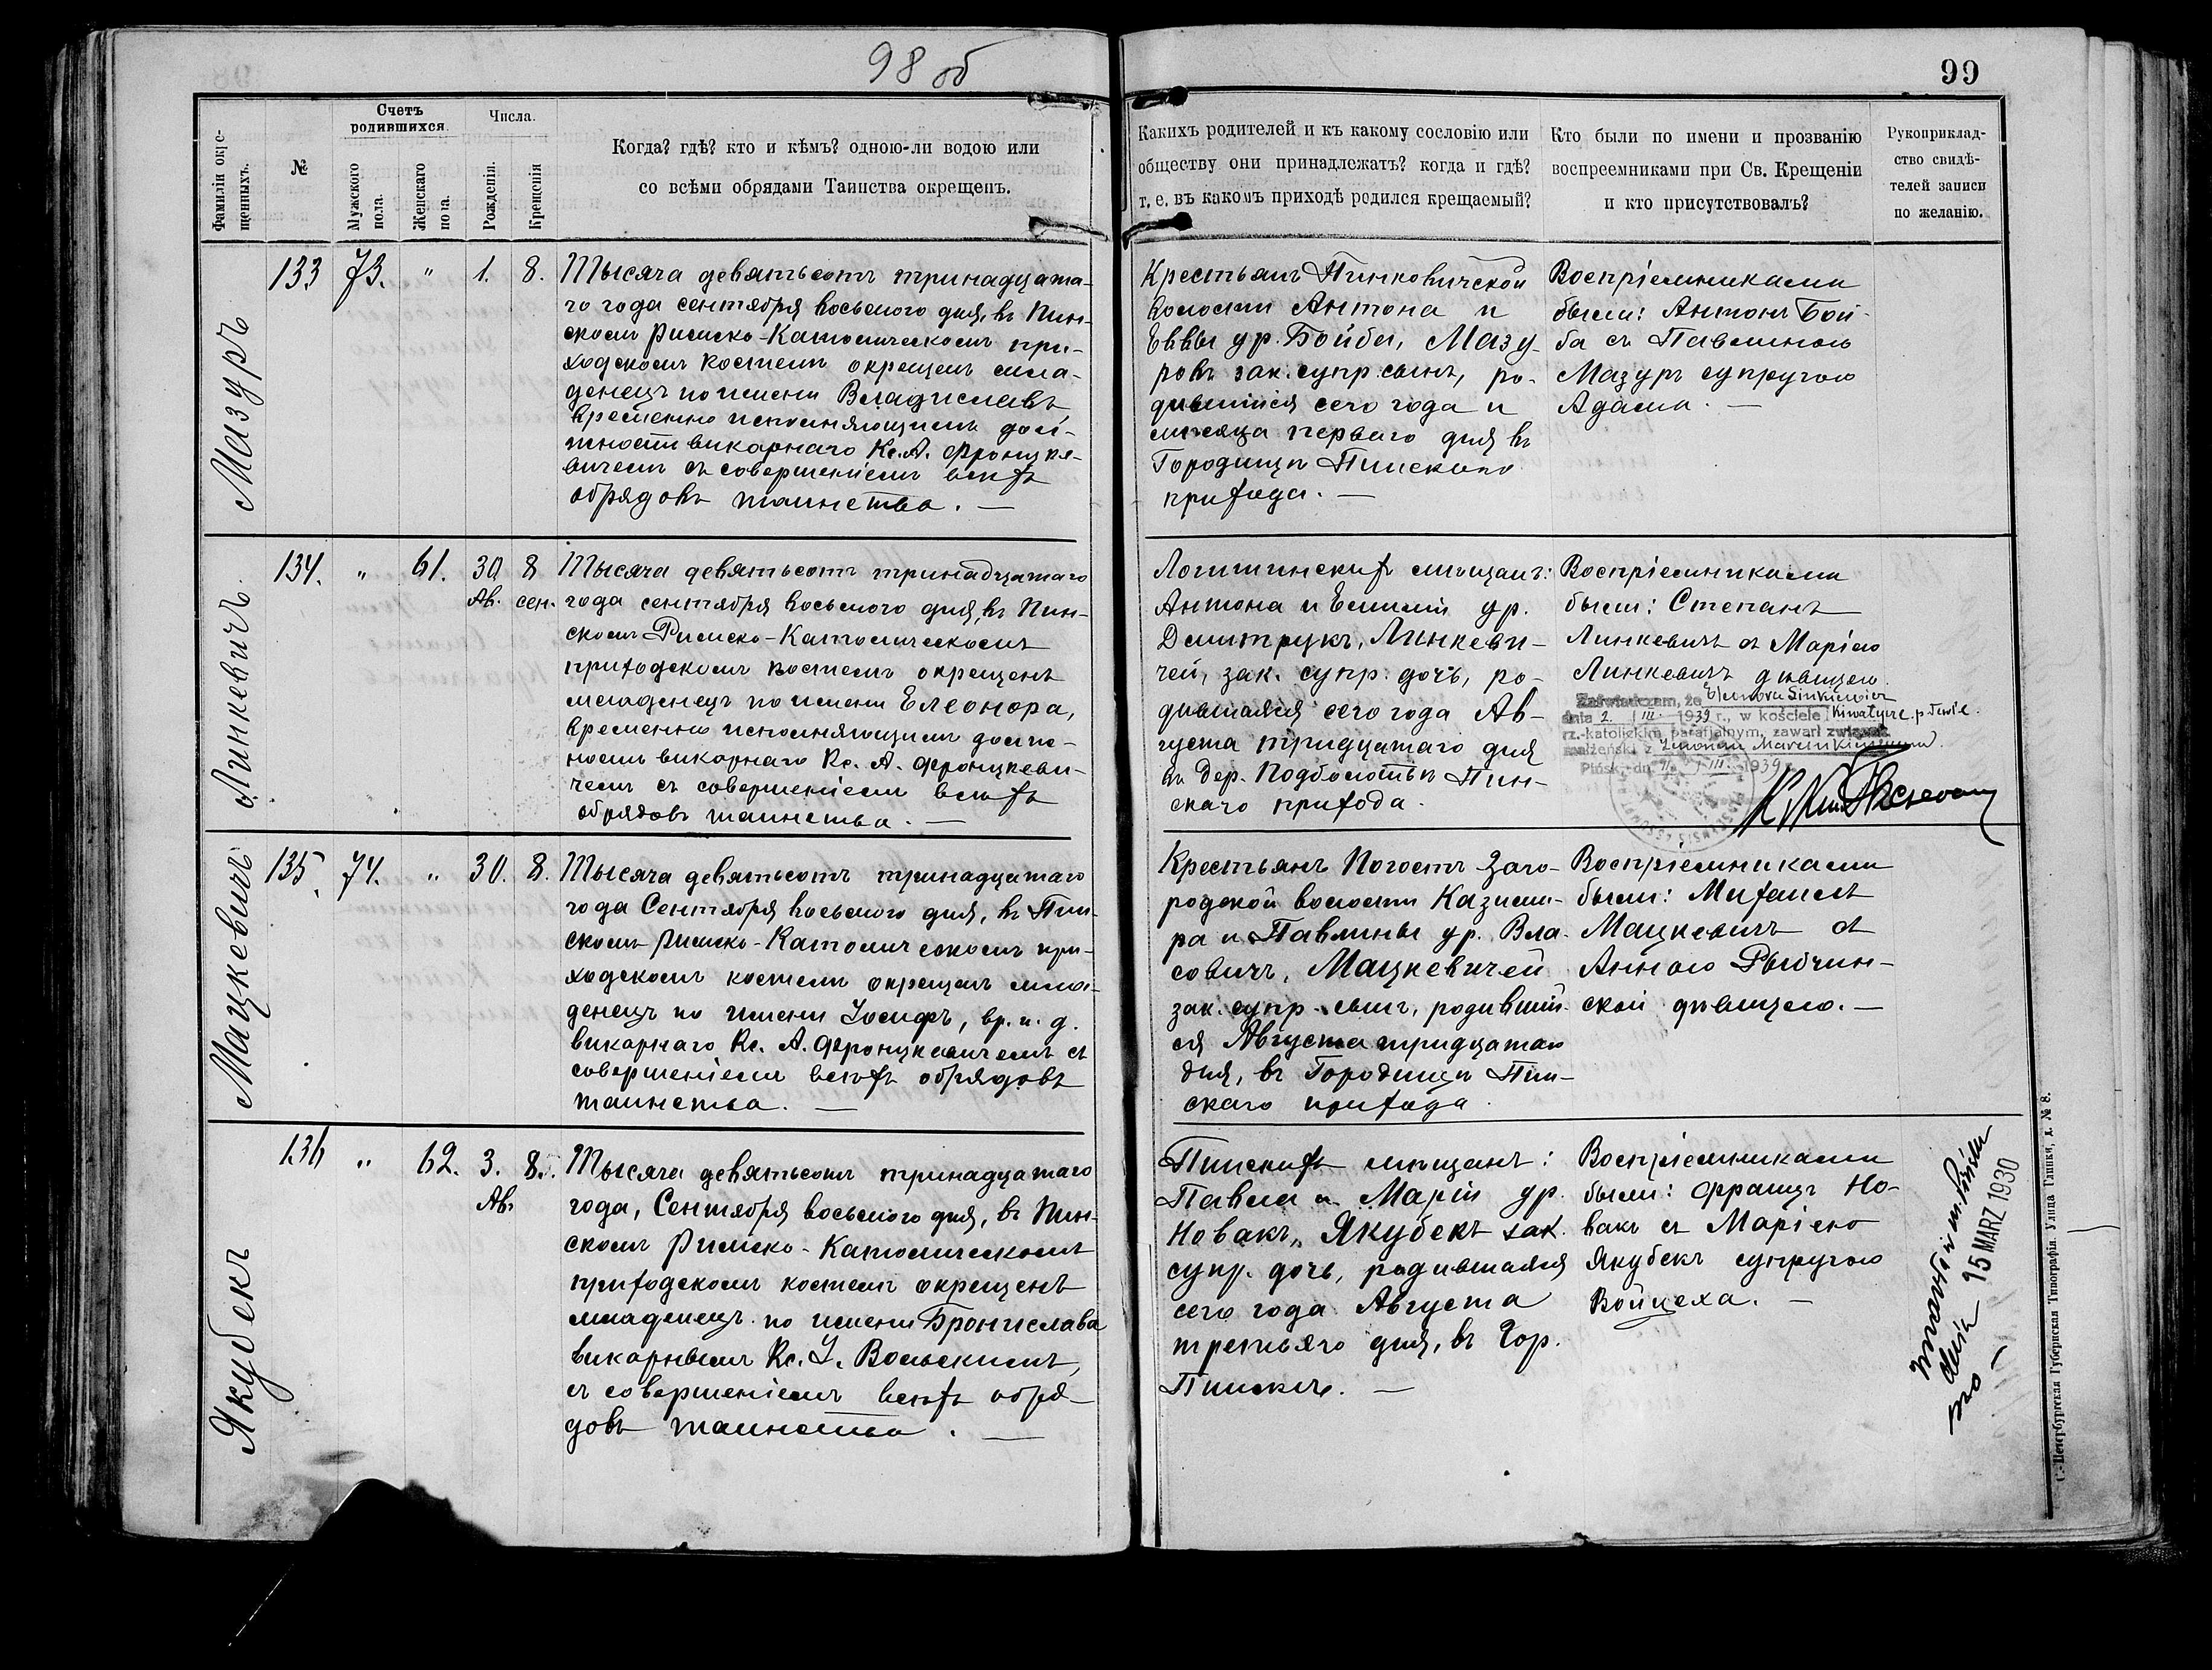 98 об
99
Фамиліи окре-
щенныхъ.
№
Счетъ
родившихся.
Мужского
пола.
Женскаго
пола.
Числа.
Рожденія.
Крещенія
Когда? гдѣ? кто и кѣмъ? одною-ли водою или
со всѣми обрядами Таинства окрещенъ.
Какихъ родителей и къ какому сословію или
обществу они принадлежатъ? когда и гдѣ?
т. е. въ какомъ приходѣ родился крещаемый?
Кто были по имени и прозванію
воспреемниками при Св. Крещеніи
и кто присутствовалъ?
Рукоприклад-
ство свидѣ-
телей записи
по желанію.
Мазуръ
133 73. " 1. 8.
Тысяча девятьсотъ тринадцата-
го года сентября восьмого дня, въ Пин-
скомъ Римско-Католическомъ при-
ходскомъ костелѣ окрещенъ мла-
денецъ по имени Владиславъ,
временно исполняющимъ дол-
жность викарнаго Кс. А. Фронцке-
вичемъ съ совершеніемъ всѣхъ
обрядовъ таинства. —
Крестьянъ Пинковичской
волости Антона и
Еввы ур. Бойбы, Мазу-
ровъ зак. супр. сынъ, ро-
дившійся сего года и
мѣсяца перваго дня въ
Городищѣ Пинскаго
прихода. —
Воспріемниками
были: Антонъ Бой-
ба съ Павлиною
Мазуръ супругою
Адама. —
Линкевичъ
134. " 61. 30 8
Ав. сен.
Тысяча девятьсотъ тринадцатаго
года сентября восьмого дня, въ Пин-
скомъ Римско-Католическомъ
приходскомъ костелѣ окрещенъ
младенецъ по имени Елеонора,
временно исполняющимъ долж-
ность викарнаго Кс. А. Фронцкеви-
чемъ съ совершеніемъ всѣхъ
обрядовъ таинства. —
Логишинскихъ мѣщанъ:
Антона и Емиліи ур.
Дмитрукъ, Линкеви-
чей, зак. супр. дочь, ро-
дившаяся сего года Ав-
густа тридцатаго дня
въ дер. Подболотьѣ Пин-
скаго прихода.
Воспріемниками
были: Степанъ
Линкевичъ съ Маріею
Линкевичъ дѣвицею.
Zaświadczam, że Eleonora Linkiewicz
dnia 2. III. 1939 r., w kościele
rz.-katolickim parafjalnym, zawarł związek
małżeński z
Pińsk, dn. III 1939 r.
Мацкевичъ
135. 74. " 30. 8.
Тысяча девятьсотъ тринадцатаго
года Сентября восьмого дня, въ Пин-
скомъ Римско-Католическомъ при-
ходскомъ костелѣ окрещенъ мла-
денецъ по имени Іосифъ, вр. и. д.
викарнаго Кс. А. Фронцкевичемъ съ
совершеніемъ всѣхъ обрядовъ
таинства. —
Крестьянъ Погостъ Заго-
родской волости Казими-
ра и Павлины ур. Вла-
совичъ, Мацкевичей
зак. супр. сынъ, родившій-
ся Августа тридцатаго
дня, въ Городищѣ Пин-
скаго прихода.
Воспріемниками
были: Михаилъ
Мацкевичъ съ
Анною Рыбчин-
ской дѣвицею. —
Якубекъ
136 " 62. 3. 8.
Ав.
Тысяча девятьсотъ тринадцатаго
года, Сентября восьмого дня, въ Пин-
скомъ Римско-Католическомъ
приходскомъ костелѣ окрещенъ
младенецъ по имени Бронислава
викарнымъ Кс. І. Вольскимъ,
съ совершеніемъ всѣхъ обря-
довъ таинства. —
Пинскихъ мѣщанъ:
Павла и Маріи ур.
Новакъ, Якубекъ зак.
супр. дочь, родившаяся
сего года Августа
третьяго дня, въ гор.
Пинскѣ. —
Воспріемниками
были: Францъ Но-
вакъ съ Маріею
Якубекъ супругою
Войцеха. —
zmarła w
dnia 15 MARZ 1930
С.-Петербургская Губернская Типографія. Улица Глинки, д. № 8.